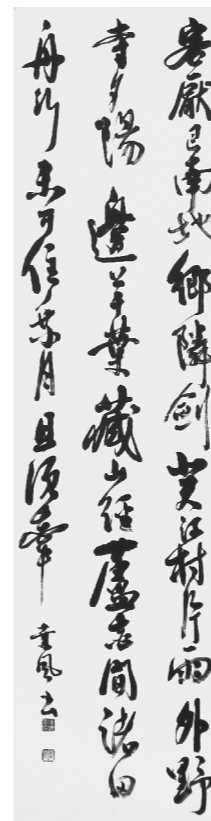 客厭巴南地鄉隣劍北天江村片雨外野
寺夕陽邊芋葉藏山徑蘆花間渚田
舟行未可住乘月且須牽 風書